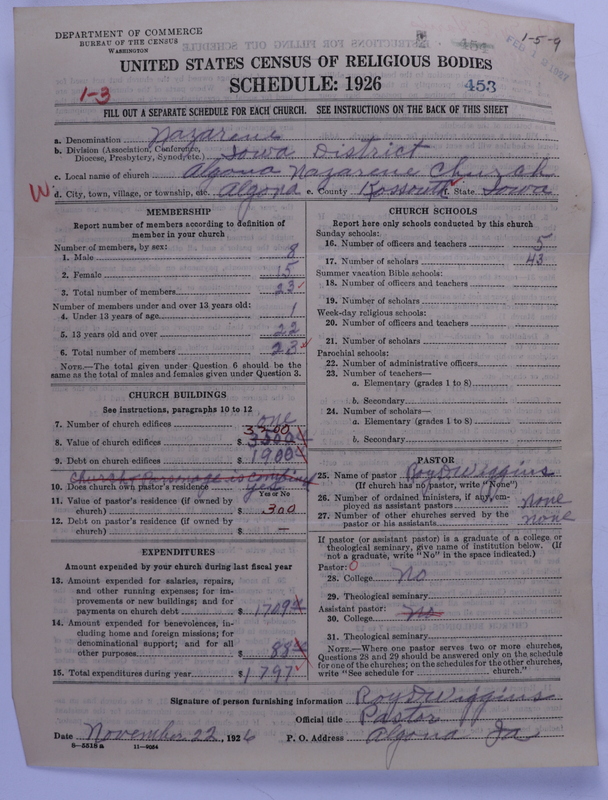 DEPARTMENT OF COMMERCE
BUREAU OF THE CENSUS
WASHINGTON
1-5-9
454
UNITED STATES CENSUS OF RELIGIOUS BODIES
SCHEDULE: 1926
1-3
453
FILL OUT A SEPARATE SCHEDULE FOR EACH CHURCH. SEE INSTRUCTIONS ON THE BACK OF THIS SHEET
a. Denomination Nazarene
b. Division (Association, Conference, Diocese, Presbytery, Synod, etc.) Iowa District
c. Local name of church Algona Nazarene Church
W.
d. City, town, village, or township, etc. Algona e. County Kossouth f. State Iowa
MEMBERSHIP
Report number of members according to definition of member in your church
Number of members, by sex:
1. Male 8
2. Female 15
3. Total number of members 23
Number of members under and over 13 years old:
4. Under 13 years of age 1
5. 13 years old and over 22
6. Total number of members 23
NOTE.—The total given under Question 6 should be the same as the total of males and females given under Question 3.
CHURCH BUILDINGS
See instructions, paragraphs 10 to 12
7. Number of church edifices one
8. Value of church edifices $ 3200
9. Debt on church edifices $ 1900
Church & Parsonage is combined
10. Does church own pastor's residence yes
Yes or No
11. Value of pastor's residence (if owned by church) $ 300
12. Debt on pastor's residence (if owned by church) $ —
EXPENDITURES
Amount expended by your church during last fiscal year
13. Amount expended for salaries, repairs, and other running expenses; for improvements or new buildings; and for payments on church debt $ 1709
14. Amount expended for benevolences, including home and foreign missions; for denominational support; and for all other purposes $ 88
15. Total expenditures during year $ 1797
CHURCH SCHOOLS
Report here only schools conducted by this church
Sunday schools:
16. Number of officers and teachers 5
17. Number of scholars 43
Summer vacation Bible schools:
18. Number of officers and teachers
19. Number of scholars
Week-day religious schools:
20. Number of officers and teachers
21. Number of scholars
Parochial schools:
22. Number of administrative officers
23. Number of teachers—
a. Elementary (grades 1 to 8)
b. Secondary
24. Number of scholars—
a. Elementary (grades 1 to 8)
b. Secondary
PASTOR
25. Name of pastor Roy D Wiggins
(If church has no pastor, write "None")
26. Number of ordained ministers, if any, employed as assistant pastors none
27. Number of other churches served by the pastor or his assistants none
If pastor (or assistant pastor) is a graduate of a college or theological seminary, give name of institution below. (If not a graduate, write "No" in the space indicated.)
Pastor: O
28. College No
29. Theological seminary
Assistant pastor:
30. College no
31. Theological seminary
NOTE.—Where one pastor serves two or more churches, Questions 28 and 29 should be answered only on the schedule for one of the churches; on the schedules for the other churches, write "See schedule for church."
Signature of person furnishing information Roy D Wiggins
Official title Pastor
Date November 22, 1926 P. O. Address Algona Ia
8—5518 a 11—9064